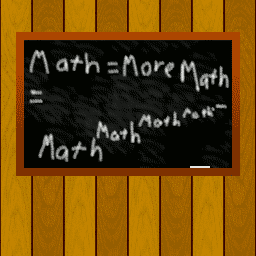 Math = More Math
=
Math Math Math Math -